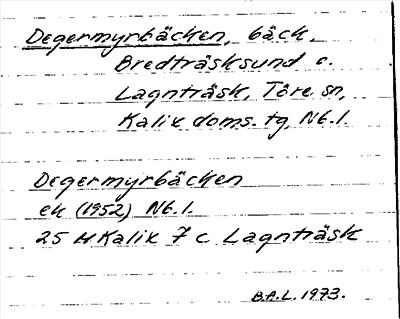 Degermyrbäcken, bäck,
Bredträsksund o.
Lagnträsk, Töre sn,
Kalix doms. tg, Nb.l.
Degermyrbäcken
ek (1952) Nb.l.
25 M Kalix 7 c Lagnträsk
B.A.L. 1973.